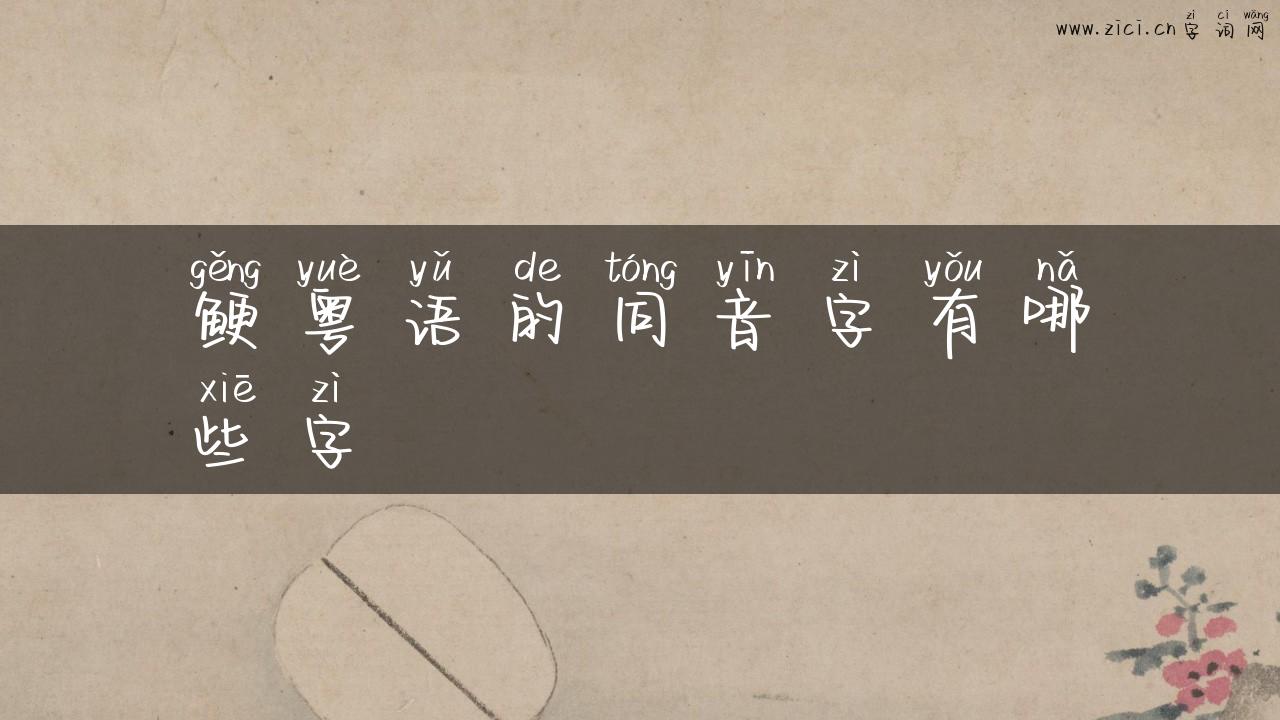 zì cí wǎng
www.zici.cn 字词网
gěng yuè yǔ de tóng yīn zì yǒu nǎ
鲠粤语的同音字有哪
xiē zì
些字